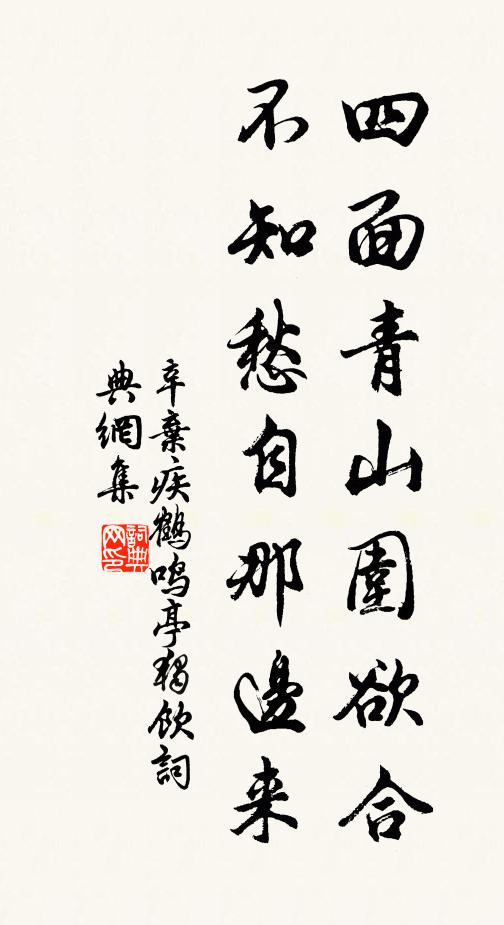 四面青山圍欲合
不知愁自那邊来
辛棄疾鶴鳴亭獨飲詞
典網集
詞典
网印